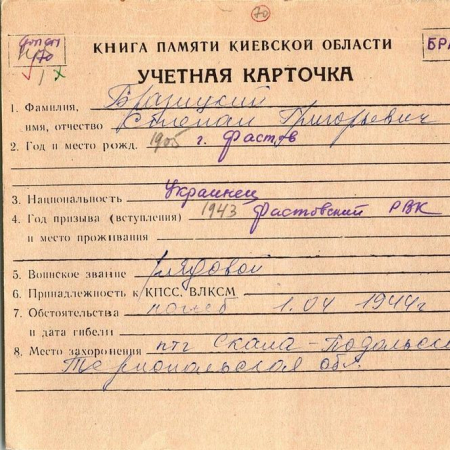 70
КНИГА ПАМЯТИ КИЕВСКОЙ ОБЛАСТИ
БРА
УЧЕТНАЯ КАРТОЧКА
1. Фамилия, Браницкий
имя, отчество Степан Григорьевич
2. Год и место рожд. 1905 г. Фастов
3. Национальность Украинец
4. Год призыва (вступления) 1943 Фастовский РВК
и место проживания
5. Воинское звание рядовой
6. Принадлежность к КПСС, ВЛКСМ
7. Обстоятельства погиб 1.04 1944г
и дата гибели
8. Место захоронения птг Скала-Подольск
Тернопольская обл.